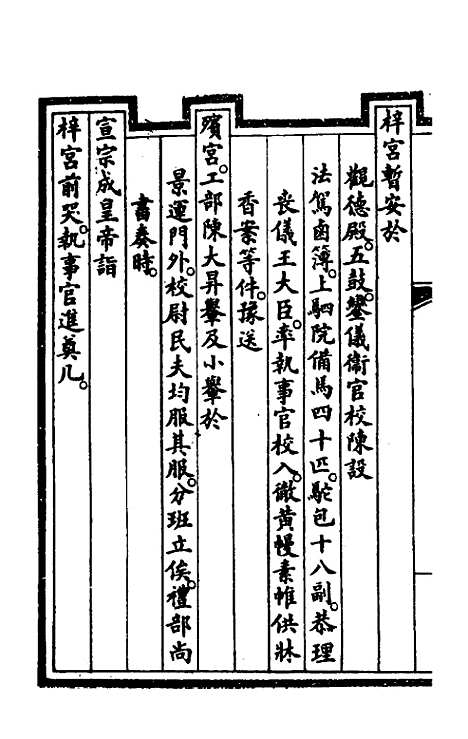 梓宮暫安於
觀德殿。五鼓。鑾儀衞官校陳設
法駕鹵簿。上駟院備馬四十匹。駝包十八副。恭理
喪儀王大臣。率執事官校入。徹黃幔素帷供牀
香案等件。豫送
殯宮。工部陳大昇轝及小轝於
景運門外。校尉民夫均服其服。分班立俟。禮部尚
書奏時。
宣宗成皇帝詣
梓宮前哭。執事官進奠几。